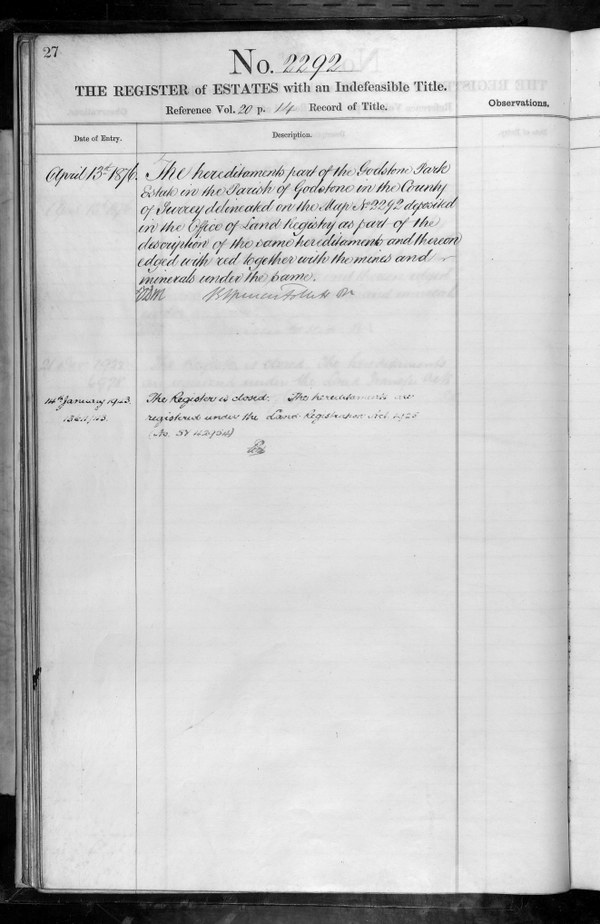 27
No. 2292
THE REGISTER of ESTATES with an Indefeasible Title.
Reference Vol. 20 p. 14 Record of Title.
Observations.
Date of Entry.
Description.
April 13th 1876.
The hereditaments part of the Godstone Park
Estate in the Parish of Godstone in the County
of Surrey delineated on the Map No 2292 deposited
in the Office of Land Registry as part of the
description of the same hereditaments and thereon
edged with red together with the mines and
minerals under the same.
14th January 1953.
The Register is closed. The hereditaments are
registered under the Land Registration Act 1925
(No.